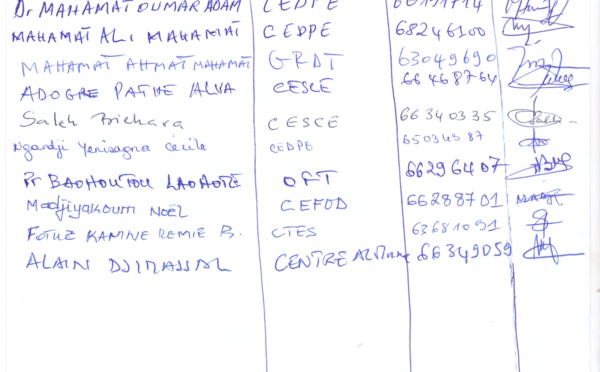 Dr MAHAMAT OUMAR ADAM CEDPE
MAHAMAT ALI MAHAMAT CEDPE 68246100
MAHAMAT AHMAT MAHAMAT GRDT 63049690
ADOGRE PATHE ALVA CESCE 66468764
Saleh Brichara CESCE 66340335
Ngandji Yenisagna Cécile CEDPE 65034387
Pr BAOHOUTOU LAOHOTE OFT 66296407
Madjiyakoum NOËL CEFOD 66288701
KAMNE REMIE B. CTES 63681091
ALAIN DJIMASSAL CENTRE 66349059